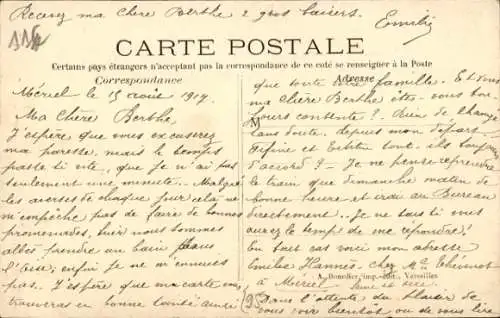 Recevez ma Chère Berthe 2 gros baisers. Emilie
115A
CARTE POSTALE
Certains pays étrangers n'acceptant pas la correspondance de ce coté se renseigner à la Poste
Correspondance
Mériel le 15 août 1919.
Ma Chère Berthe,
J'espère que vous excuserez
ma paresse, mais le temps
passe si vite, que je n'ai pas
seulement une minute. Malgré
les averses de chaque jour cela ne
m'empêche pas de faire de bonnes
promenades, hier nous sommes
allés prendre un bain dans
l'Oise; enfin je ne m'ennuie
pas. J'espère que ma carte vous
trouvera en bonne santé ainsi
Adresse
que toute votre famille. Et vous
ma Chère Berthe êtes-vous tou-
jours contente ? Rien de changé
M
sans doute, depuis mon départ
et tout ils toujours
d'accord ? - Je ne pense reprendre
le train que dimanche matin de
bonne heure et irai au Bureau
directement. Je ne sais si vous
aurez le temps de me répondre!
En tout cas voici mon adresse
Emilie Hannès, chez Me Thévenot
A. Bourdier, imp.-édit., Versailles
à Mériel Seine et Oise.
Dans l'attente du plaisir de
vous voir bientôt ou de vous lire